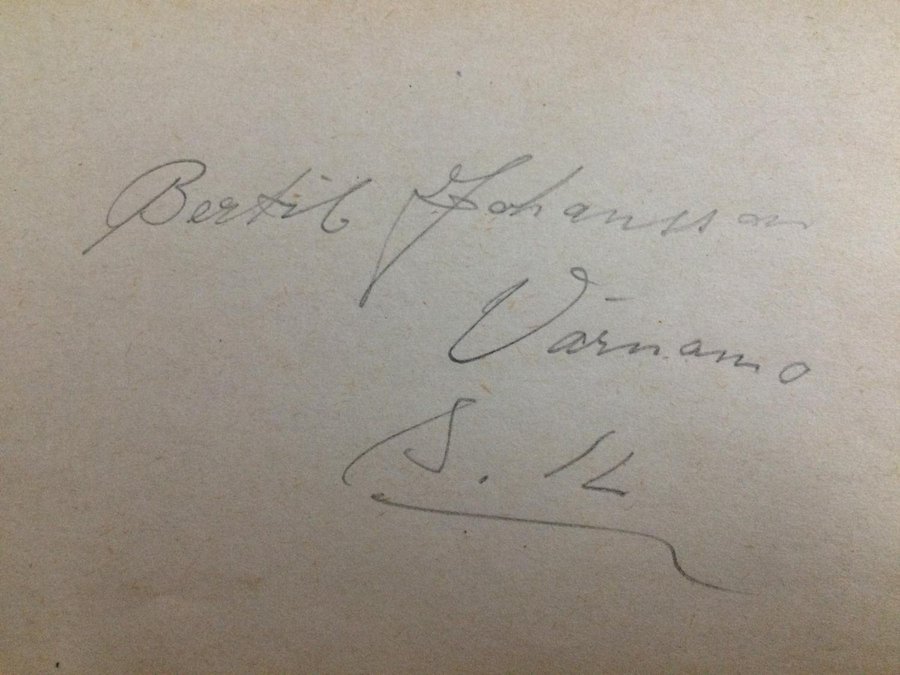 Bertil Johansson
Värnamo
S. 12